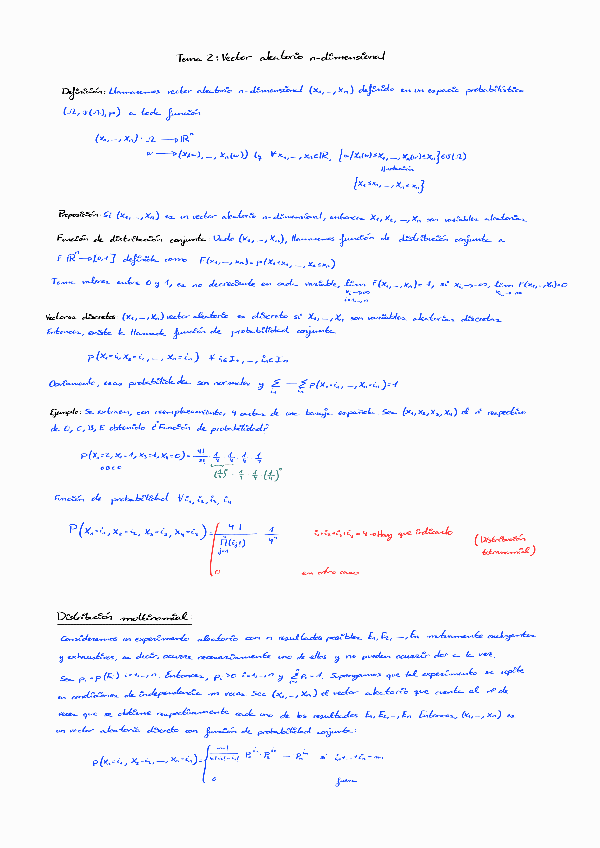 Tema 2: Vector aleatorio n-dimensional
Definición: Llamaremos vector aleatorio n-dimensional (X₁, –, Xn) definido en un espacio probabilístico
(Ω, σ(Ω), p) a toda función
(X₁, –, Xn): Ω → ℝⁿ
w → (X₁(w), –, Xn(w)) tq ∀x₁, –, xn ∈ ℝ, {w/X₁(w) ≤ x₁, –, Xn(w) ≤ xn} ∈ σ(Ω)
{X₁ ≤ x₁, –, Xn ≤ xn}
Proposición: Si (X₁, –, Xn) es un vector aleatorio n-dimensional, entonces X₁, X₂, –, Xn son variables aleatorias.
Función de distribución conjunta Dado (X₁, –, Xn), llamaremos función de distribución conjunta a
F: ℝⁿ → [0,1] definida como F(x₁, –, xn) = p(X₁ ≤ x₁, –, Xn ≤ xn)
Toma valores entre 0 y 1, es no decreciente en cada variable, lim F(x₁, –, xn) = 1, si lim F(x₁, –, xn) = 0
Vectores discretos (X₁, –, Xn) vector aleatorio es discreto si X₁, –, Xn son variables aleatorias discretas
Entonces, existe la llamada función de probabilidad conjunta
p(X₁ = i₁, X₂ = i₂, –, Xn = in) ∀ i₁ ∈ I₁, –, in ∈ In
Obviamente, esas probabilidades son no y Σ – Σ p(X₁ = i₁, –, Xn = in) = 1
Ejemplo: Se extraen, con reemplazamiento, 4 cartas de una baraja española. Sea (X₁, X₂, X₃, X₄) el nº respectivo
de O, C, B, E obtenido ¿Función de probabilidad?
p(X₁ = 2, X₂ = 1, X₃ = 1, X₄ = 0) = 4!/2! 1/4 1/4 1/4 1/4
(1/4)² · 1/4 · 1/4 (1/4)⁰
Función de probabilidad ∀ i₁, i₂, i₃, i₄
= 4! / ∏(ij!) · 1/4⁴ i₁+i₂+i₃+i₄ = 4 → Hay que indicarlo (Distribución
tetranomial)
0 en otro caso
Distribución multinomial
Consideremos un experimento aleatorio con n resultados posibles E₁, E₂, –, En mutuamente excluyentes
y exhaustivos, es decir, ocurre necesariamente uno de ellos y no pueden ocurrir dos a la vez.
Sea pi = p(Ei) i = 1, –, n. Entonces, pi > 0 i = 1, –, n y Σ pi = 1. Supongamos que tal experimento se repite
en condiciones de independencia m veces Sea (X₁, –, Xn) el vector aleatorio que cuenta el nº de
veces que se obtiene respectivamente cada uno de los resultados E₁, E₂, –, En Entonces, (X₁, –, Xn) es
un vector aleatorio discreto con función de probabilidad conjunta:
p(X₁ = i₁, X₂ = i₂, –, Xn = in) = m!/(i₁! i₂! – in!) p₁^i₁ · p₂^i₂ – pn^in si i₁ + – + in = m
0 fuera